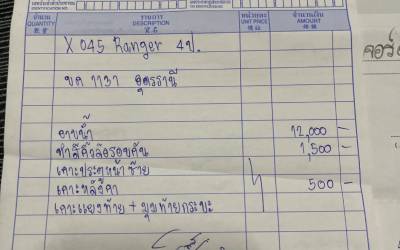 จำนวน รายการ หน่วยละ จำนวนเงิน
QUANTITY DESCRIPTION UNIT PRICE AMOUNT
X 045 Ranger 4ป.
ขค 1131 อุดรธานี
อาบน้ำ 12,000 -
ทำสีคิ้วล้อรอบคัน 1,500 -
เคาะประตูหน้าซ้าย
เคาะหลังคา 500 -
เคาะแยงท้าย + มุมท้ายกระบะ